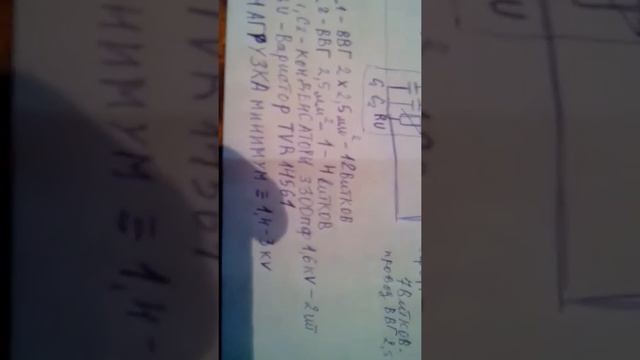 1 - ВВГ 2x2,5мм² - 12 витков
2 - ВВГ 2,5мм² - 1 - 4 витков
, C2 - Конденсатори 3300пф 1,6kv - 2шт
RU - Вариотор TVR 14561
НАГРУЗКА минимум = 1,4 - 3 kv
C1 C2 RU
7 витков -
провод ВВГ 2,5